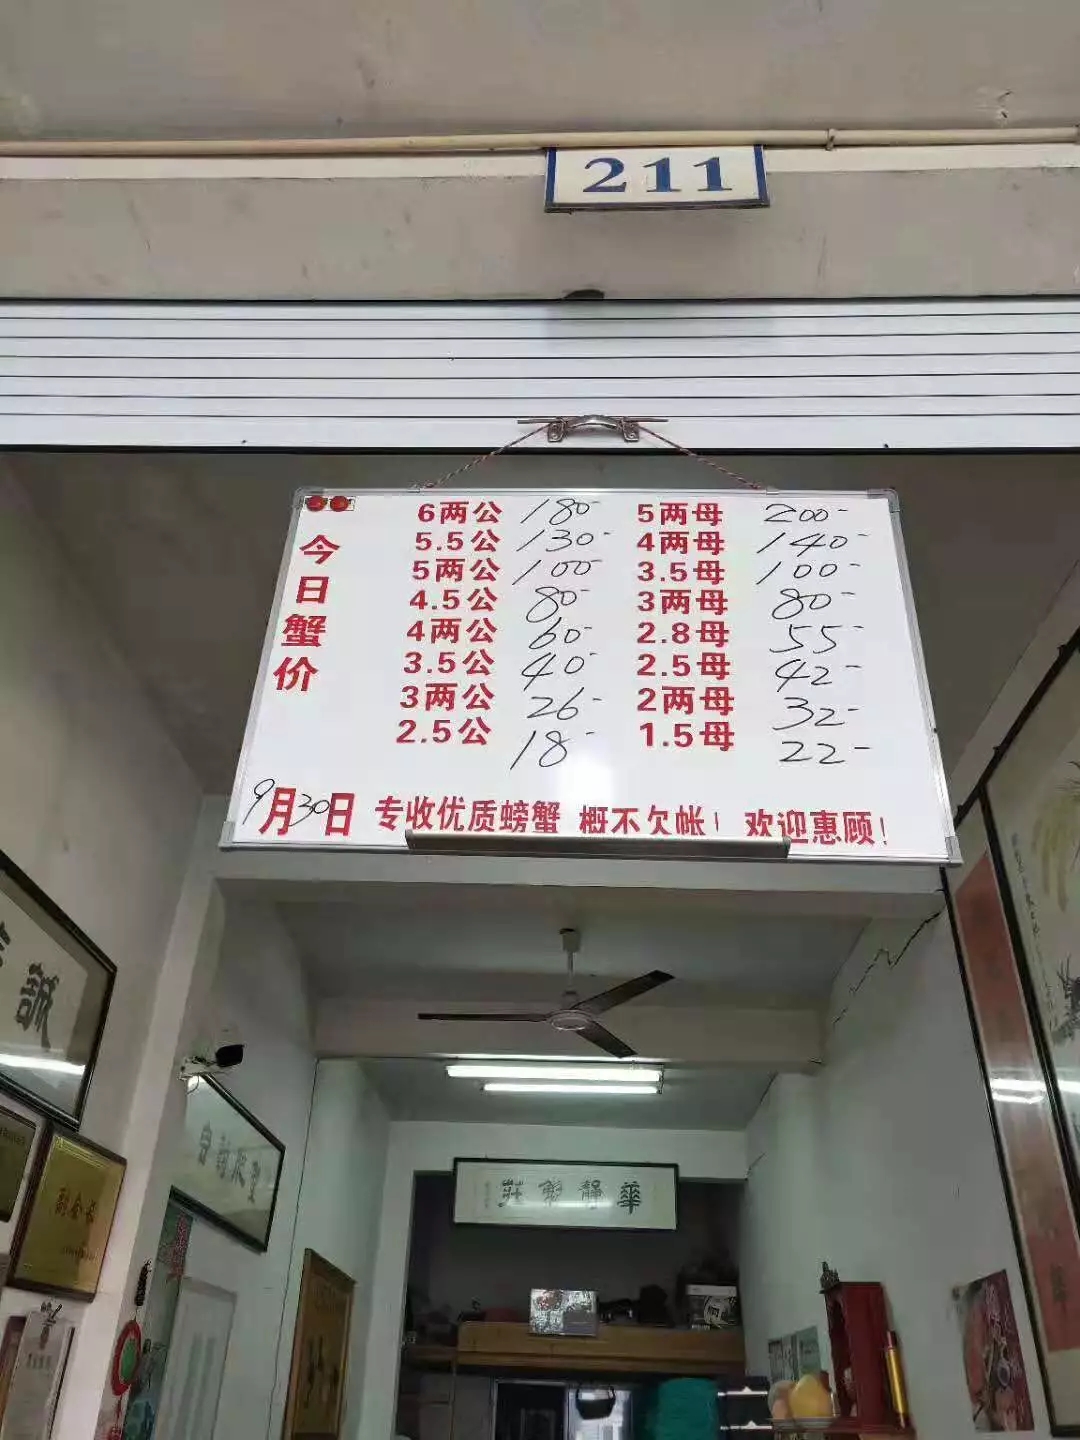 211
今日蟹价
6两公 180- 5两母 200-
5.5公 130- 4两母 140-
5两公 100 3.5母 100-
4.5公 80- 3两母 80-
4两公 60- 2.8母 55-
3.5公 40- 2.5母 42-
3两公 26- 2两母 32-
2.5公 18- 1.5母 22-
9月30日 专收优质螃蟹 概不欠帐！ 欢迎惠顾！
誠
華靜蟹莊